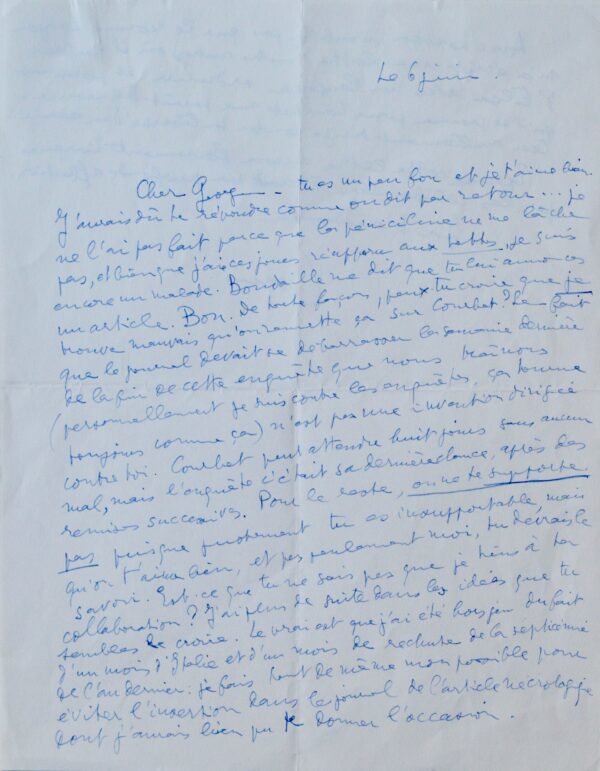 Le 6 juin.
Cher Georges – tu es un peu fou et je t'aime bien.
J'aurais dû te répondre comme on dit par retour... je
ne l'ai pas fait parce que la pénicilline ne me lâche
pas, et bien que j'aie ces jours réapparu aux Lettres, je suis
encore un malade. Boudaille me dit que tu lui annonces
un article. Bon. De toute façons, peux-tu croire que je
trouve mauvais qu'on remette ça sur Courbet? Le fait
que le journal devait se débarrasser la semaine dernière
de la fin de cette enquête que nous traînons
(personnellement je suis contre les enquêtes, ça tourne
toujours comme ça) n'est pas une invention dirigée
contre toi. Courbet peut attendre huit jours sans aucun
mal, mais l'enquête c'était sa dernière chance, après des
remises successives. Pour le reste, on ne te supporte
pas puisque justement tu es insupportable, mais
qu'on t'aime bien, et pas seulement moi, tu devrais le
savoir. Est-ce que tu ne sais pas que je tiens à ta
collaboration? J'ai plus de suite dans les idées que tu
sembles le croire. Le vrai est que j'ai été hors jeu du fait
d'un mois d'Italie et d'un mois de rechute de la septicémie
de l'an dernier: je fais tout de même mon possible pour
éviter l'insertion dans le journal de l'article nécrologique
dont j'aurais bien pu te donner l'occasion.